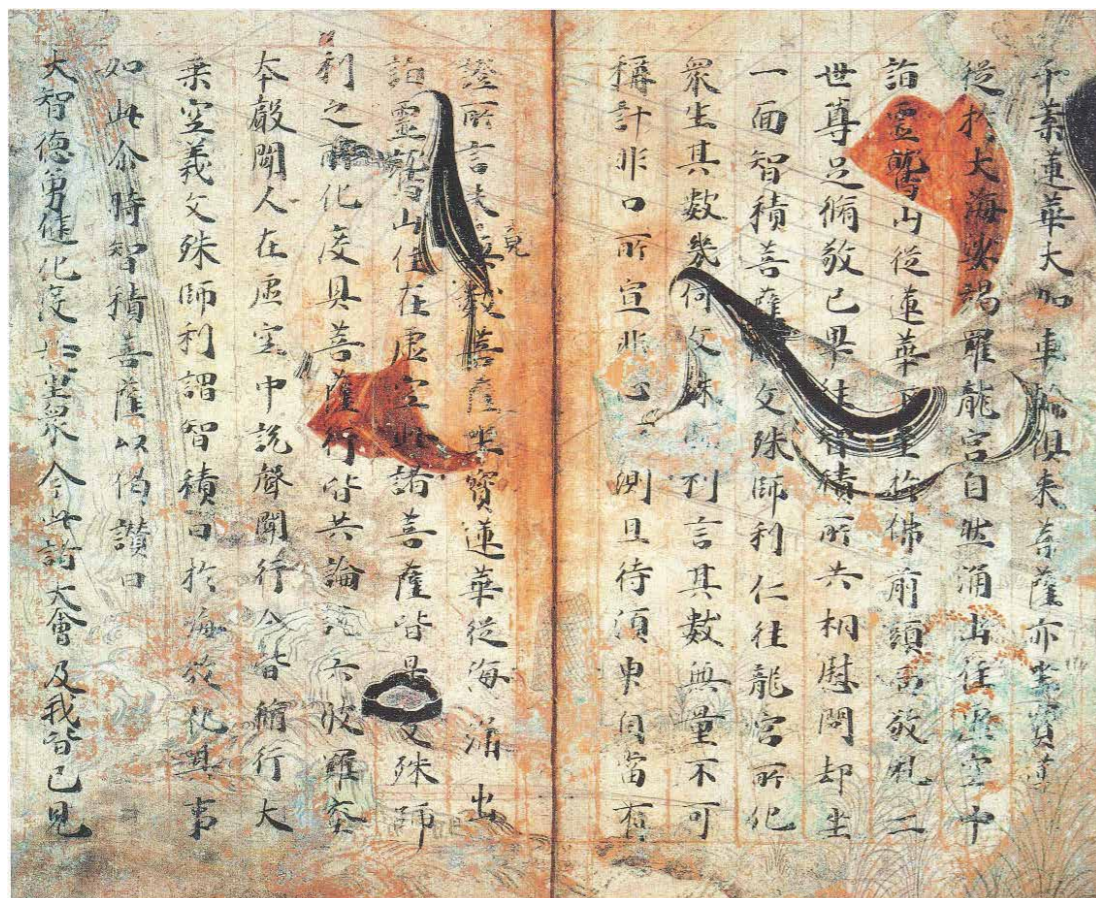 千葉蓮華大如車輪俱来菩薩亦坐寶蓮
從於大海娑竭羅龍宮自然涌出住虚空中
詣靈鷲山從蓮華下至於佛前頭面敬礼二
世尊足脩敬已畢往智積所共相慰問却坐
一面智積菩薩問文殊師利仁往龍宮所化
衆生其數幾何文殊師利言其數無量不可
稱計非口所宣非心所測且待須臾自當有
證所言未竟無數菩薩坐寶蓮華從海涌出
詣靈鷲山住在虚空此諸菩薩皆是文殊師
利之所化度具菩薩行皆共論説六波羅蜜
本聲聞人在虚空中説聲聞行今皆脩行大
乗空義文殊師利謂智積曰於海教化其事
如此尒時智積菩薩以偈讃曰
大智徳勇健化度無量衆今此諸大會及我皆已見